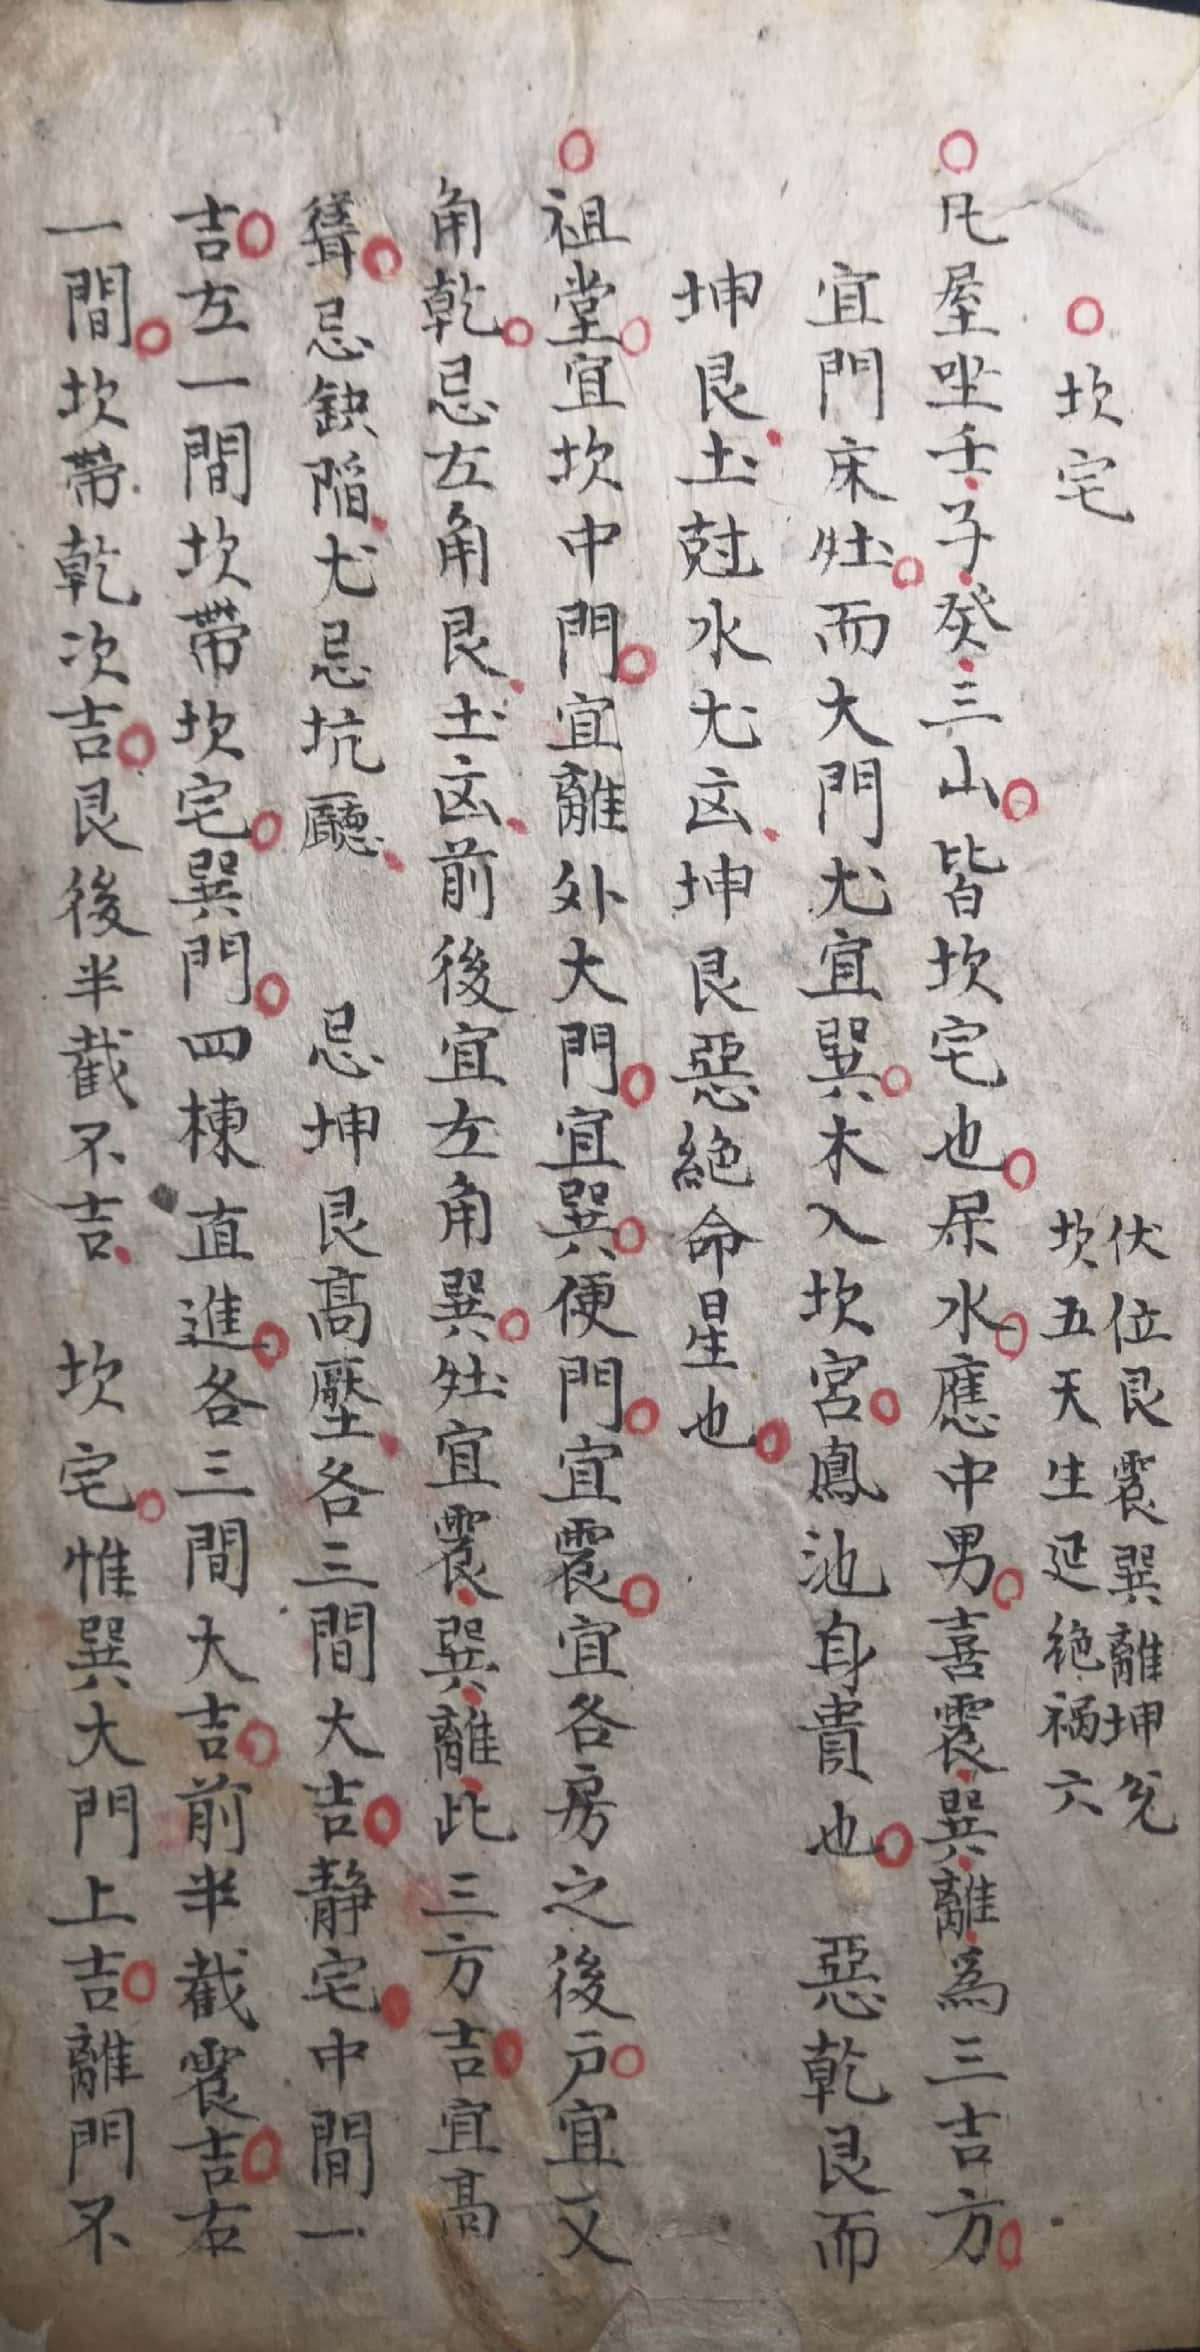 坎宅
伏位艮震巽離坤兌
坎五天生延絶禍六
凡屋坐壬子癸三山皆坎宅也屎水應中男喜震巽離為三吉方
宜門床灶而大門尤宜巽木入坎宮鳳池身貴也　惡乾艮而
坤艮土尅水尤凶坤艮惡絶命星也
祖堂宜坎中門宜離外大門宜巽便門宜震宜各房之後户宜又
角乾忌左角艮土凶前後宜左角巽灶宜震巽離此三方吉宜高
聳忌缺陷尤忌坑廳　忌坤艮高壓各三間大吉静宅中間一
吉左一間坎帶坎宅巽門四棟直進各三間大吉前半截震吉右
一間坎帶乾次吉艮後半截不吉　坎宅惟巽大門上吉離門不